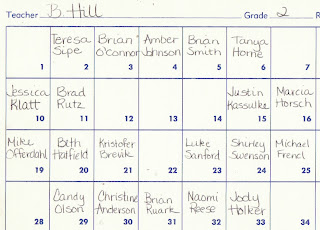 Teacher B. Hill Grade 2
Teresa Brian Amber Brian Tanya
Sipe O'connor Johnson Smith Horne
1 2 3 4 5 6 7
Jessica Brad Justin Marcia
Klatt Rutz Kassulke Horsch
10 11 12 13 14 15 16
Mike Beth Kristofer Luke Shirley Michael
Offerdahl Hatfield Brevik Sanford Swenson Frencl
19 20 21 22 23 24 25
Candy Christine Brian Naomi Jody
Olson Anderson Ruark Reese Holker
28 29 30 31 32 33 34